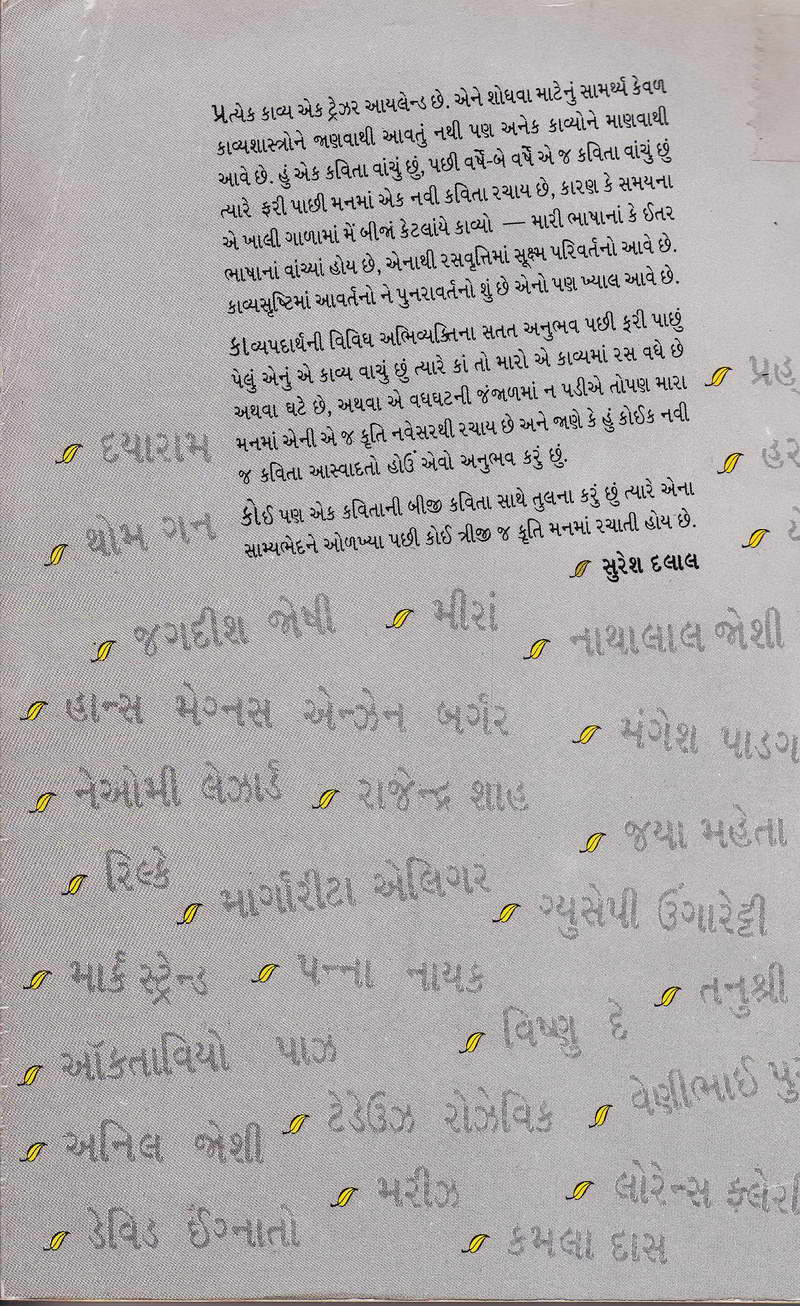 પ્રત્યેક કાવ્ય એક ટ્રેઝર આયલેન્ડ છે. એને શોધવા માટેનું સામર્થ્ય કેવળ
કાવ્યશાસ્ત્રોને જાણવાથી આવતું નથી પણ અનેક કાવ્યોને માણવાથી
આવે છે. હું એક કવિતા વાંચું છું, પછી વર્ષે-બે વર્ષે એ જ કવિતા વાંચું છું
ત્યારે ફરી પાછી મનમાં એક નવી કવિતા રચાય છે, કારણ કે સમયના
એ ખાલી ગાળામાં મેં બીજાં કેટલાંયે કાવ્યો — મારી ભાષાનાં કે ઈતર
ભાષાનાં વાંચ્યાં હોય છે, એનાથી રસવૃત્તિમાં સૂક્ષ્મ પરિવર્તનો આવે છે.
કાવ્યસૃષ્ટિમાં આવર્તનો ને પુનરાવર્તનો શું છે એનો પણ ખ્યાલ આવે છે.
કાવ્યપદાર્થની વિવિધ અભિવ્યક્તિના સતત અનુભવ પછી ફરી પાછું
પેલું એનું એ કાવ્ય વાચું છું ત્યારે કાં તો મારો એ કાવ્યમાં રસ વધે છે
અથવા ઘટે છે, અથવા એ વધઘટની જંજાળમાં ન પડીએ તોપણ મારા
મનમાં એની એ જ કૃતિ નવેસરથી રચાય છે અને જાણે કે હું કોઈક નવી
જ કવિતા આસ્વાદતો હોઉં એવો અનુભવ કરું છું.
કોઈ પણ એક કવિતાની બીજી કવિતા સાથે તુલના કરું છું ત્યારે એના
સામ્યભેદને ઓળખ્યા પછી કોઈ ત્રીજી જ કૃતિ મનમાં રચાતી હોય છે.
સુરેશ દલાલ
પ્રહ્
દયારામ
હર
થોમ ગન
જગદીશ જોષી
મીરાં
નાથાલાલ જોશી
હાન્સ મેગ્નસ એન્ઝેન બર્ગર
મંગેશ પાડગ
નેઓમી લેઝાર્ડ
રાજેન્દ્ર શાહ
જયા મહેતા
રિલ્કે
માર્ગારીટા એલિગર
ગ્યુસેપી ઉંગારેટ્ટી
માર્ક સ્ટ્રેન્ડ
પન્ના નાયક
તનુશ્રી
ઑક્તાવિયો પાઝ
વિષ્ણુ દે
વેણીભાઈ પુર
ટેડેઉઝ રોઝેવિક
અનિલ જોશી
મરીઝ
લોરેન્સ ફ્લેરી
ડેવિડ ઈગ્નાતો
કમલા દાસ